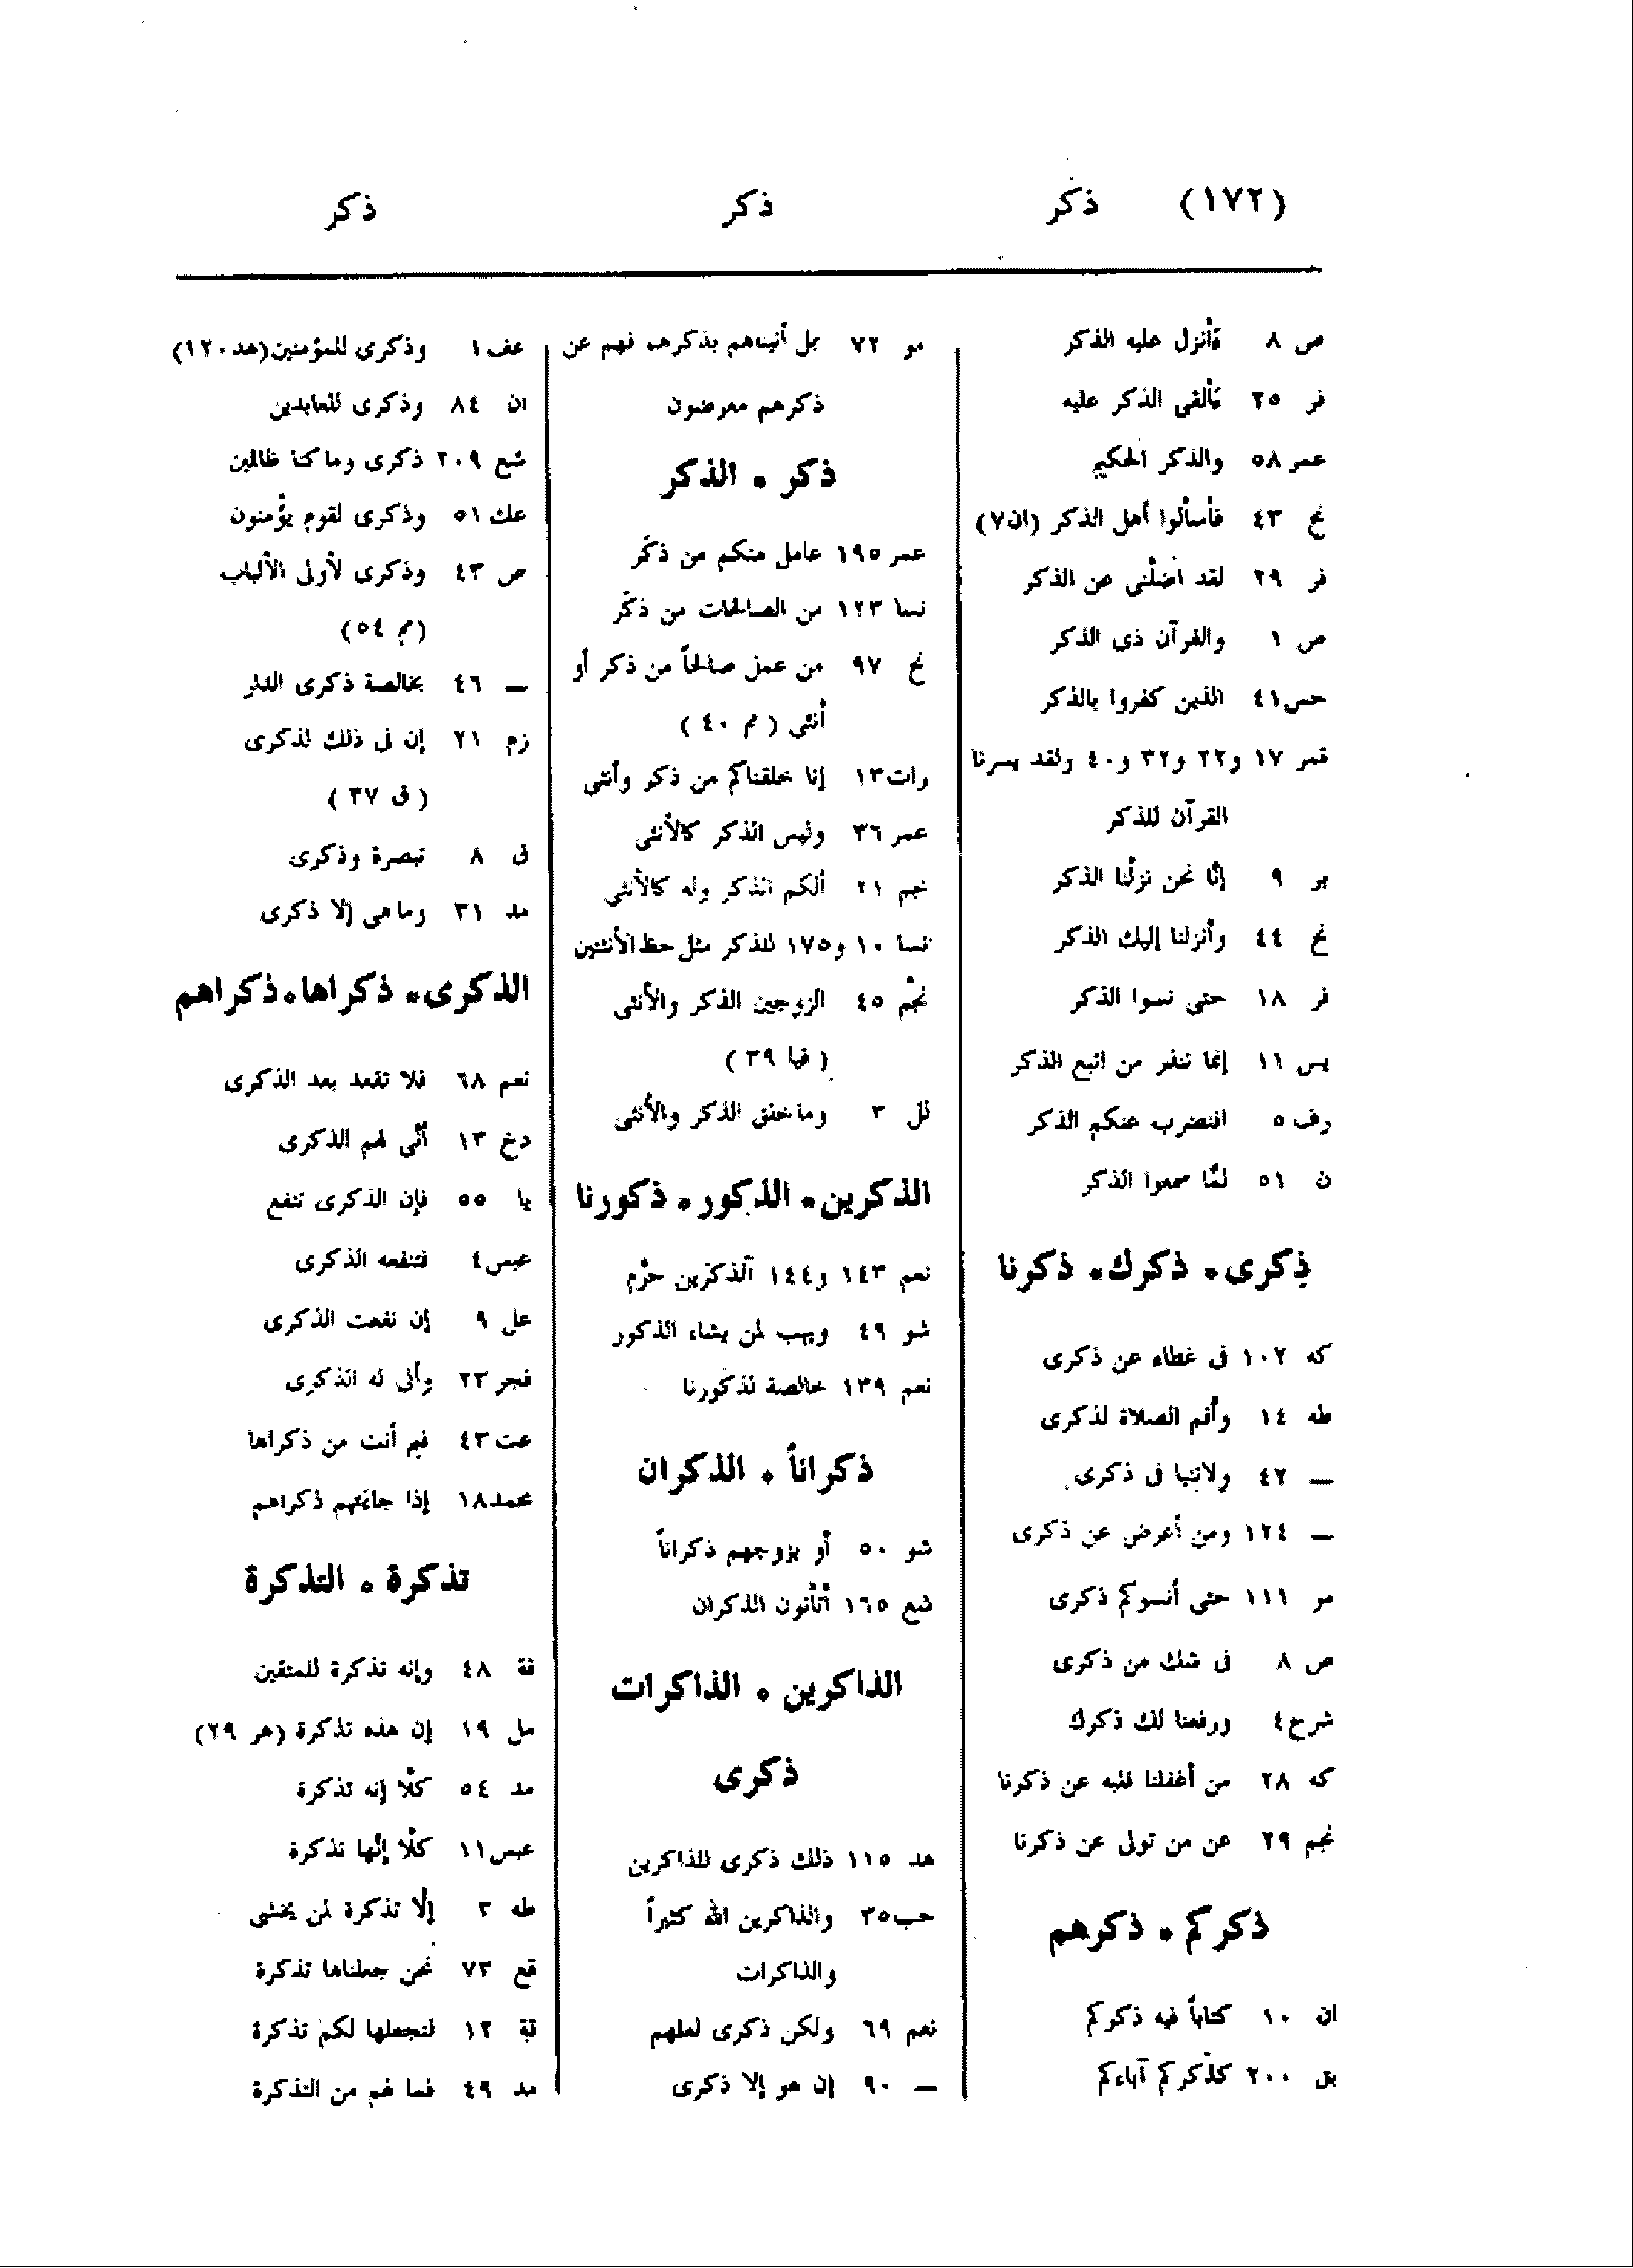 (١٧٢) ذكر
ذكر
ذكر
ص ٨ ءَأنزل عليه الذكر
قر ٢٥ ءَألقى الذكر عليه
عمر ٥٨ والذكر الحكيم
نح ٤٣ فأسألوا أهل الذكر (ان٧)
فر ٢٩ لقد أضلّنى عن الذكر
ص ١ والقرآن ذى الذكر
حس٤١ الذين كفروا بالذكر
قمر ١٧ و٢٢ و٣٢ و٤٠ ولقد يسرنا
القرآن للذكر
بر ٩ إنّا نحن نزلّنا الذكر
نح ٤٤ وأنزلنا إليك الذكر
فر ١٨ حتى نسوا الذكر
يس ١١ إنما تنذر من اتبع الذكر
رف ٥ افنضرب عنكم الذكر
ن ٥١ لمّا سمعوا الذكر
ذِكرى * ذكرك * ذكرنا
كه ١٠٢ فى غطاء عن ذكرى
طه ١٤ وأقم الصلاة لذكرى
— ٤٢ ولاتنيا فى ذكرى
— ١٢٤ ومن أعرض عن ذكرى
مو ١١١ حتى أنسوكم ذكرى
ص ٨ فى شك من ذكرى
شرح٤ ورفعنا لك ذكرك
كه ٢٨ من أغفلنا قلبه عن ذكرنا
نجم ٢٩ عن من تولى عن ذكرنا
ذكركم * ذكرهم
ان ١٠ كتاباً فيه ذكركم
بق ٢٠٠ كذكركم آباءكم
مو ٧٢ بل أتيناهم بذكرهم فهم عن
ذكرهم معرضون
ذكر * الذكر
عمر ١٩٥ عامل منكم من ذكَر
نسا ١٢٣ من الصالحات من ذكَر
نح ٩٧ من عمل صالحاً من ذكر أو
أنثى (مم ٤٠)
رات١٣ إنا خلقناكم من ذكر وأنثى
عمر ٣٦ وليس الذكر كالأنثى
نجم ٢١ ألكم الذكر وله كالأنثى
نسا ١٠ و١٧٥ للذكر مثل حظ الأنثيين
نجْم ٤٥ الزوجين الذكر والأنثى
(قيا ٣٩)
لل ٣ وماخلق الذكر والأنثى
الذكرين * الذكور * ذكورنا
نعم ١٤٣ و١٤٤ آلذكرين حرّم
شو ٤٩ ويهب لمن يشاء الذكور
نعم ١٣٩ خالصة لذكورنا
ذكراناً * الذكران
شو ٥٠ أو يزوجهم ذكراناً
شع ١٦٥ أتأتون الذكران
الذاكرين * الذاكرات
ذكرى
هد ١١٥ ذلك ذكرى للذاكرين
حب٣٥ والذاكرين الله كثيراً
والذاكرات
نعم ٦٩ ولكن ذكرى لعلهم
— ٩٠ إن هو إلا ذكرى
عف ١ وذكرى للمؤمنين(هد١٢٠)
ان ٨٤ وذكرى للعابدين
شع ٢٠٩ ذكرى وما كنا ظالمين
عك ٥١ وذكرى لقوم يؤمنون
ص ٤٣ وذكرى لأولى الألباب
(مم ٥٤)
— ٤٦ بخالصة ذكرى الدار
زم ٢١ إن فى ذلك لذكرى
(ق ٣٧)
ق ٨ تبصرة وذكرى
مد ٣١ وما هى إلا ذكرى
الذكرى * ذكراها * ذكراهم
نعم ٦٨ فلا تقعد بعد الذكرى
دخ ١٣ أنّى لهم الذكرى
يا ٥٥ فإن الذكرى تنفع
عبس٤ فتنفعه الذكرى
عل ٩ إن نفعت الذكرى
فجر ٢٣ وأنى له الذكرى
عت ٤٣ فيم أنت من ذكراها
محمد١٨ إذا جاءتهم ذكراهم
تذكرة * التذكرة
قة ٤٨ وإنه تذكرة للمتقين
مل ١٩ إن هذه تذكرة (هر ٢٩)
مد ٥٤ كلّا إنه تذكرة
عبس١١ كلّا إنّها تذكرة
طه ٣ إلّا تذكرة لمن يخشى
قع ٧٣ نحن جعلناها تذكرة
قة ١٢ لنجعلها لكم تذكرة
مد ٤٩ فما لهم من التذكرة